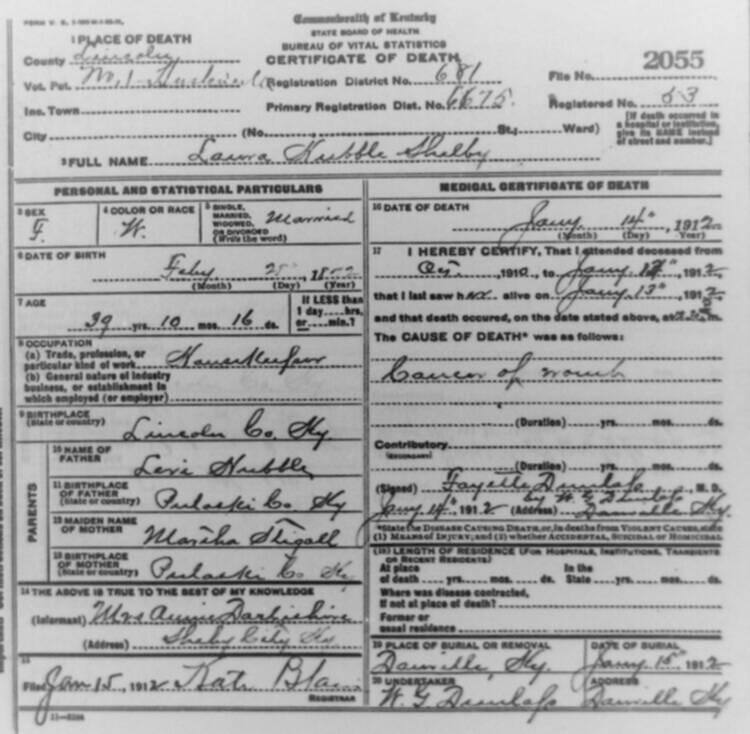 Commonwealth of Kentucky
STATE BOARD OF HEALTH
BUREAU OF VITAL STATISTICS
CERTIFICATE OF DEATH
1 PLACE OF DEATH
County Lincoln
Vot. Pct. No. 1
Registration District No. 681
File No. 2055
Inc. Town
Primary Registration Dist. No. 6675.
Registered No. 53
City (No. St.; Ward)
[If death occurred in a hospital or institution, give its NAME instead of street and number.]
2 FULL NAME Laura Hubble Shelby
PERSONAL AND STATISTICAL PARTICULARS
3 SEX
F.
4 COLOR OR RACE
W.
5 SINGLE, MARRIED, WIDOWED, OR DIVORCED (Write the word)
Married
6 DATE OF BIRTH
Feby
(Month) (Day) (Year)
7 AGE
39 yrs. 10 mos. 16 ds.
If LESS than 1 day hrs. or min.?
8 OCCUPATION
(a) Trade, profession, or particular kind of work Housekeeper
(b) General nature of industry business, or establishment in which employed (or employer)
9 BIRTHPLACE
(State or country) Lincoln Co. Ky
PARENTS
10 NAME OF FATHER Levi Hubble
11 BIRTHPLACE OF FATHER
(State or country) Pulaski Co Ky
12 MAIDEN NAME OF MOTHER Martha Stigall
13 BIRTHPLACE OF MOTHER
(State or country) Pulaski Co Ky
14 THE ABOVE IS TRUE TO THE BEST OF MY KNOWLEDGE
(Informant) Mrs Annie Darbishire
(Address) Shelby City Ky
15
Filed Jan 15, 1912 Kate Blain
REGISTRAR
MEDICAL CERTIFICATE OF DEATH
16 DATE OF DEATH
Jany. 14th 1912
(Month) (Day) (Year)
17 I HEREBY CERTIFY, That I attended deceased from
1910, to Jany, 1912
that I last saw her alive on Jany 13th, 1912
and that death occured, on the date stated above, at m.
The CAUSE OF DEATH* was as follows:
Cancer of womb
(Duration) yrs. mos. ds.
Contributory
(SECONDARY)
(Duration) yrs. mos. ds.
(Signed) Fayette Dunlap, M. D.
by W. G. Dunlap
Jany 14th, 1912 (Address) Danville Ky
*State the DISEASE CAUSING DEATH, or, in deaths from VIOLENT CAUSES, state (1) MEANS OF INJURY; and (2) whether ACCIDENTAL, SUICIDAL or HOMICIDAL
(18) LENGTH OF RESIDENCE (FOR HOSPITALS, INSTITUTIONS, TRANSIENTS OR RECENT RESIDENTS)
At place of death yrs. mos. ds. In the State yrs. mos. ds.
Where was disease contracted,
If not at place of death?
Former or
usual residence
19 PLACE OF BURIAL OR REMOVAL
Danville, Ky.
DATE OF BURIAL
Jany. 15th 1912
20 UNDERTAKER
W. G. Dunlap
ADDRESS
Danville Ky